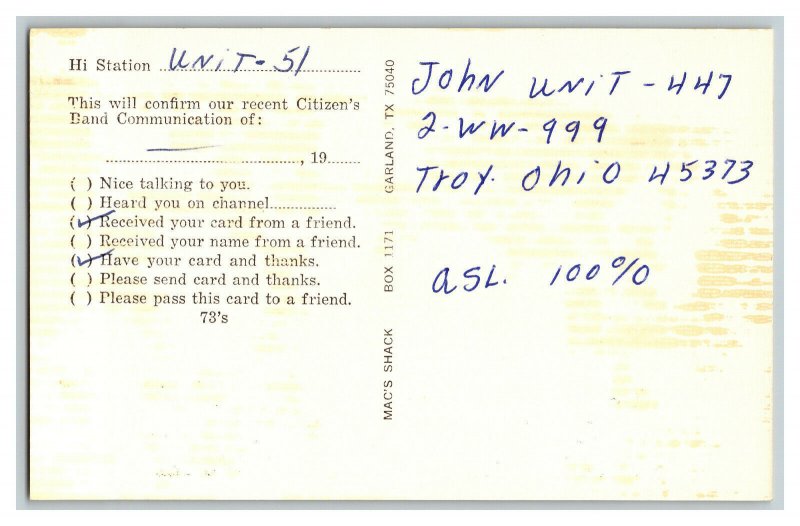 Hi Station UNIT-51
This will confirm our recent Citizen's
Band Communication of:
, 19
( ) Nice talking to you.
( ) Heard you on channel
(✓) Received your card from a friend.
( ) Received your name from a friend.
(✓) Have your card and thanks.
( ) Please send card and thanks.
( ) Please pass this card to a friend.
73's
MAC'S SHACK BOX 1171 GARLAND, TX 75040
John UNIT-447
2-WW-999
Troy. Ohio 45373
ASL. 100%